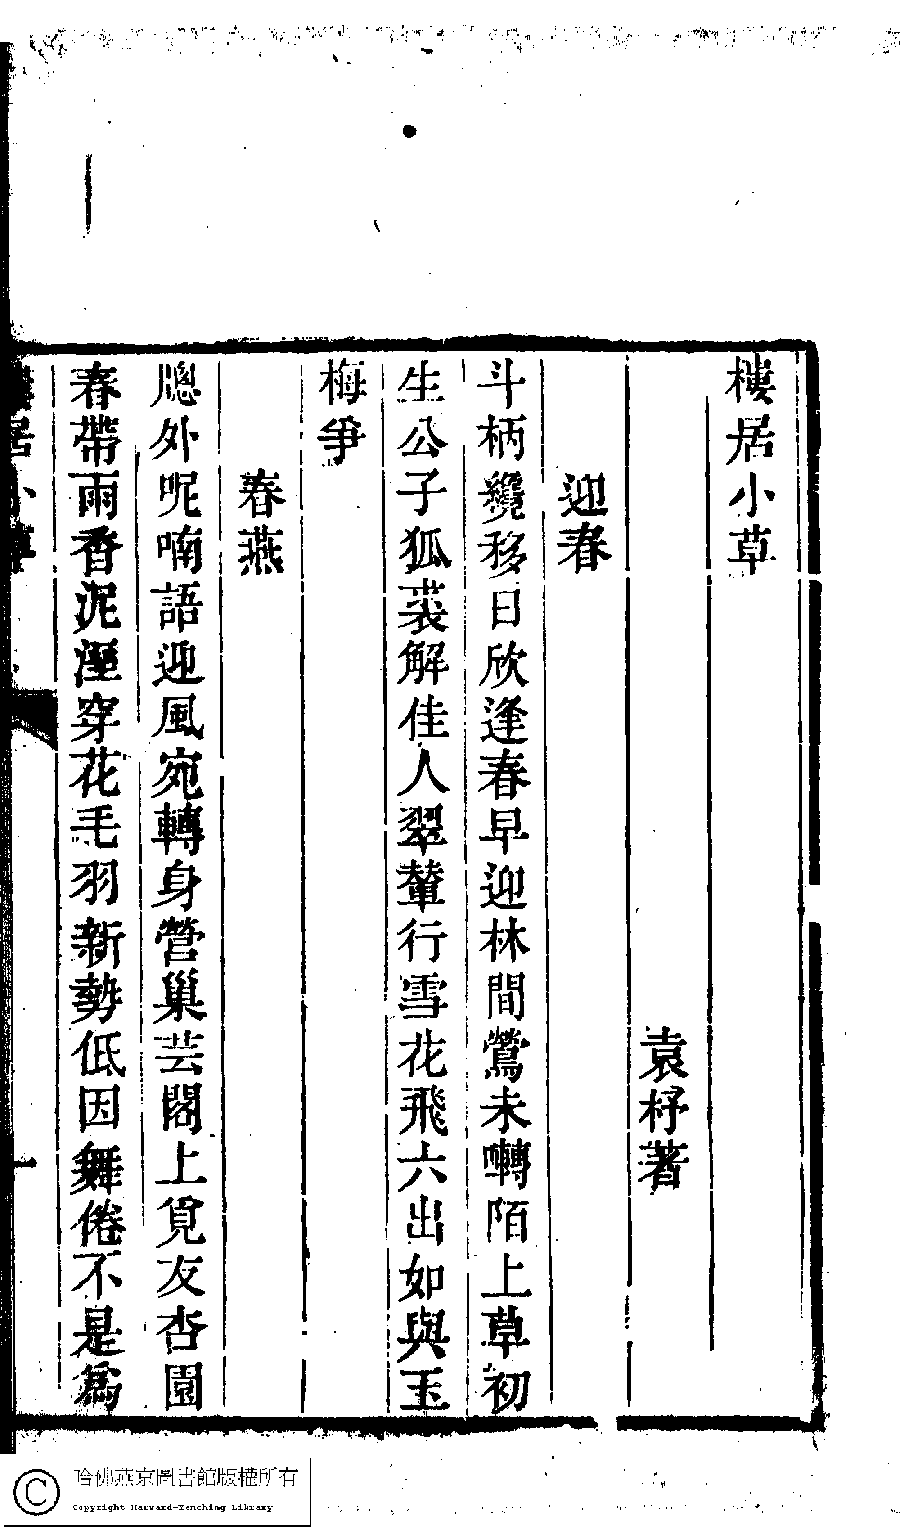 樓居小草
袁杼著
迎春
斗柄纔移日欣逢春早迎林間鶯未囀陌上草初
生公子狐裘解佳人翠輦行雪花飛六出如與玉
梅爭
春燕
牕外呢喃語迎風宛轉身營巢芸閣上覓友杏園
春帶雨香泥溼穿花毛羽新勢低因舞倦不是爲
樓居小草
一
哈佛燕京圖書館版權所有
Copyright Harvard-Yenching Library